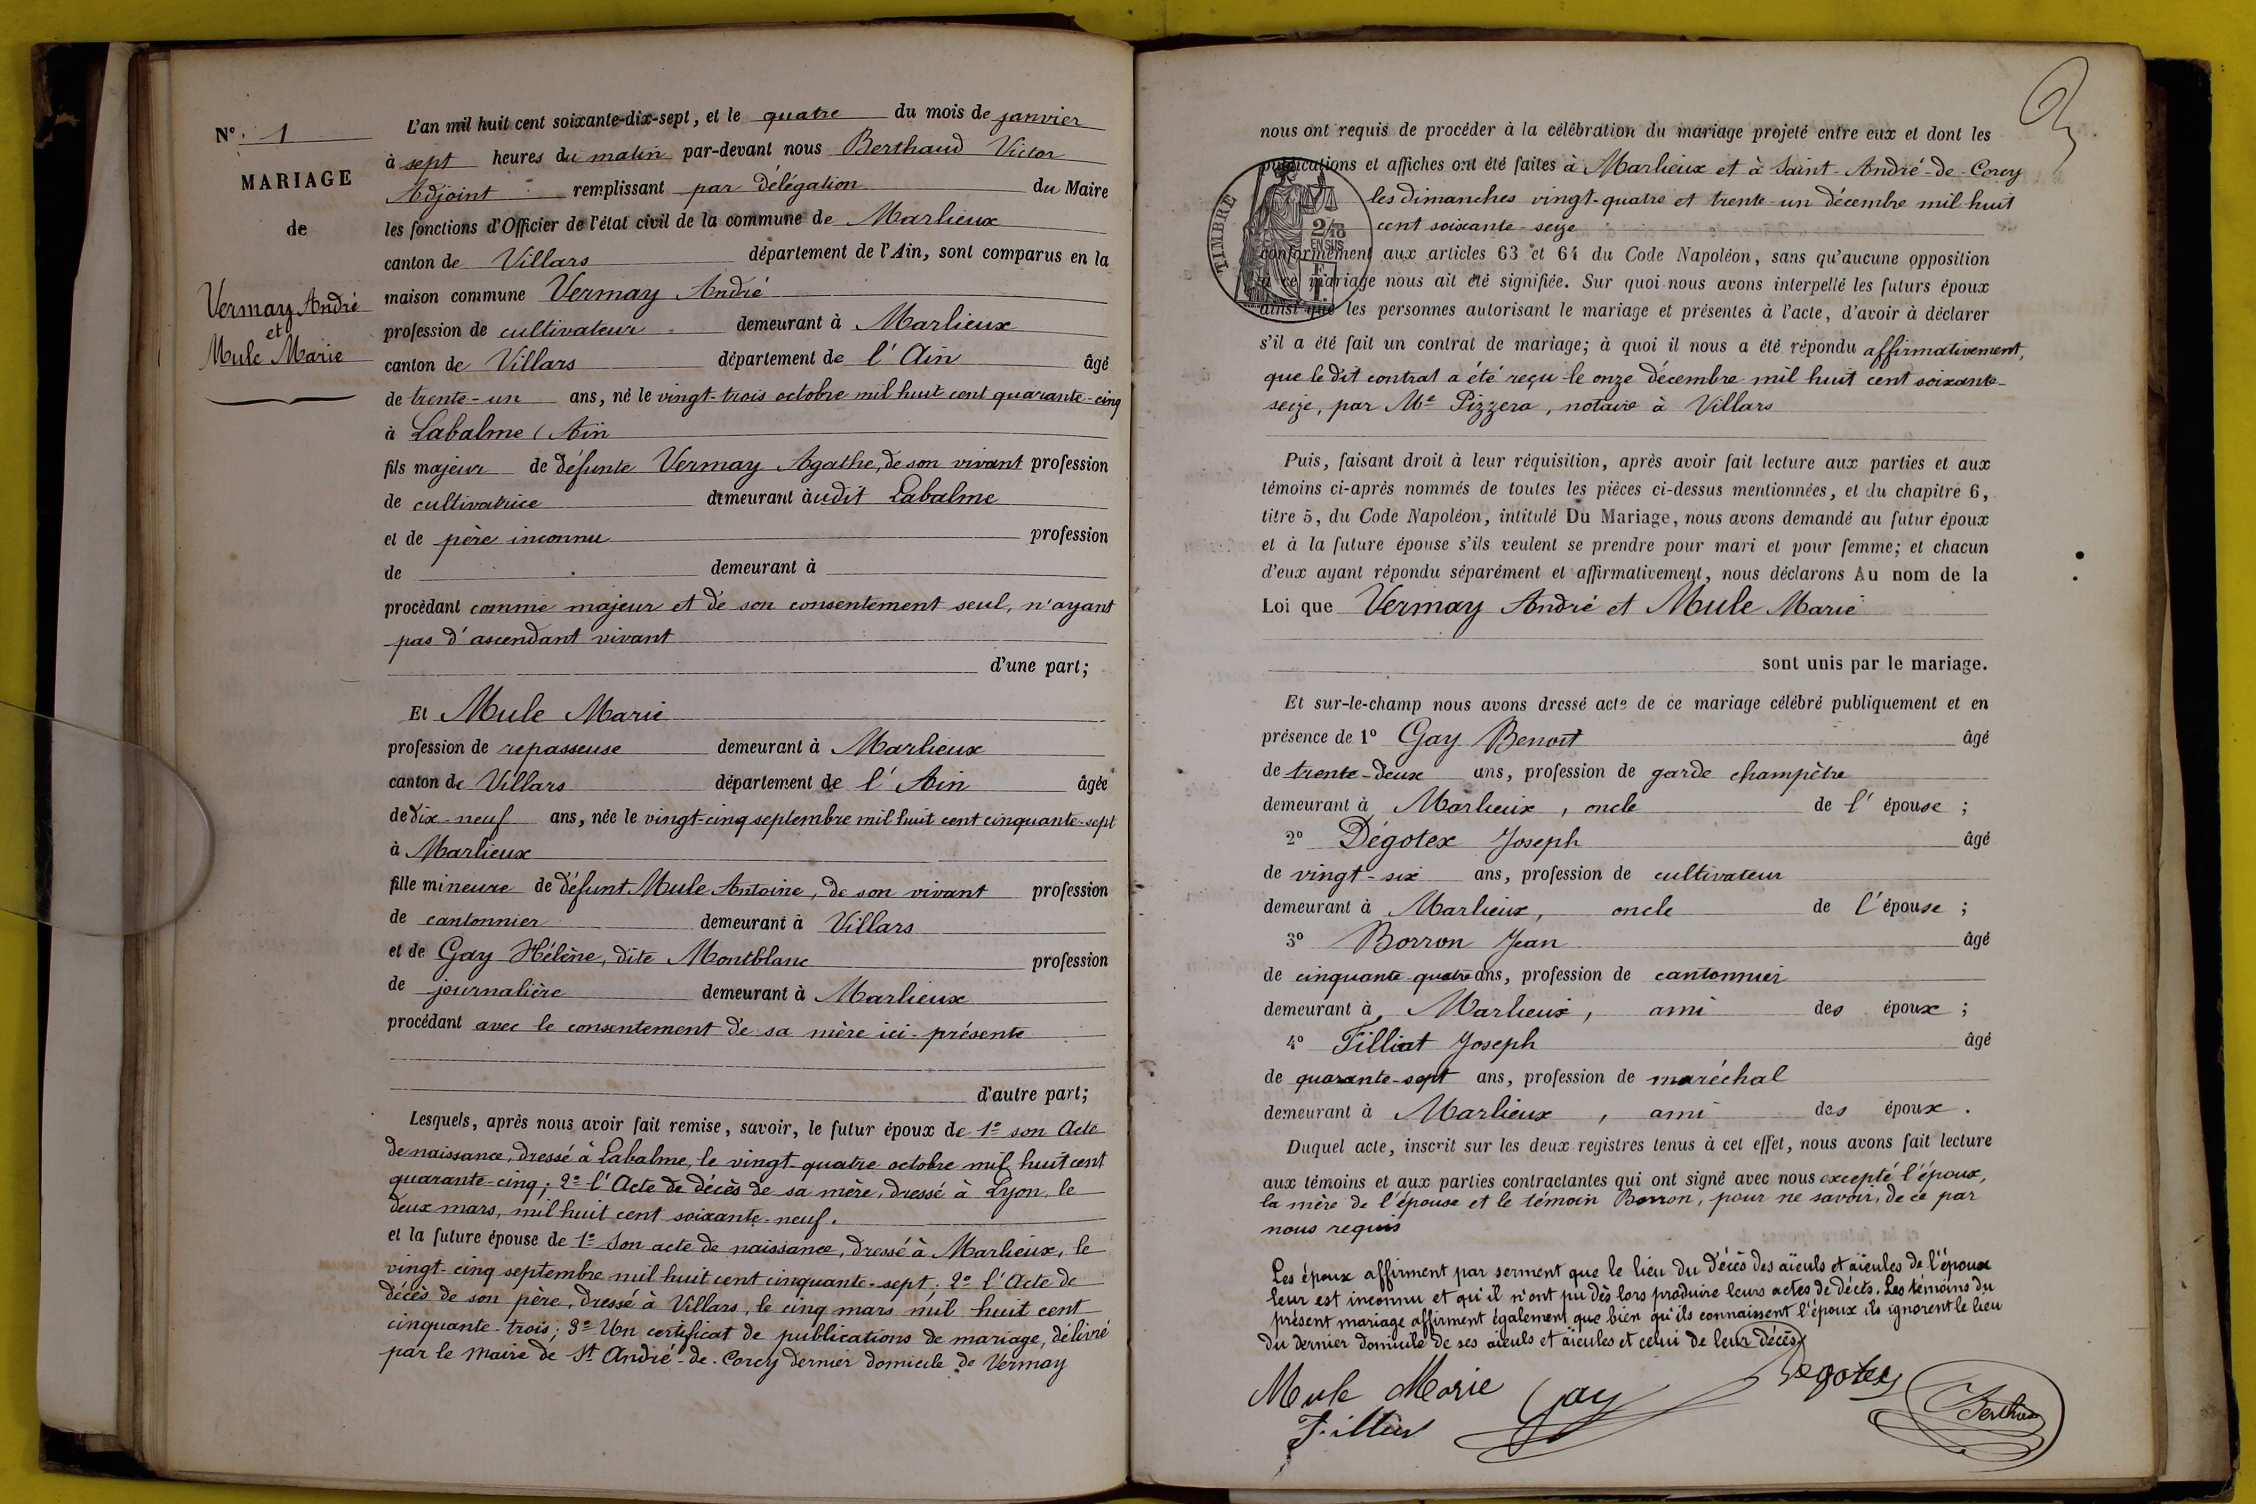 N° 1
MARIAGE
de
Vermay André
et
Mule Marie
L'an mil huit cent soixante-dix-sept, et le quatre du mois de janvier
à sept heures du matin par-devant nous Berthaud Victor
Adjoint remplissant par délégation du Maire
les fonctions d'Officier de l'état civil de la commune de Marlieux
canton de Villars département de l'Ain, sont comparus en la
maison commune Vermay André
profession de cultivateur demeurant à Marlieux
canton de Villars département de l'Ain âgé
de trente-un ans, né le vingt-trois octobre mil huit cent quarante-cinq
à Labalme (Ain
fils majeur de défunte Vermay Agathe, de son vivant profession
de cultivatrice demeurant àudit Labalme
et de père inconnu profession
de demeurant à
procédant comme majeur et de son consentement seul, n'ayant
pas d'ascendant vivant
d'une part;
Et Mule Marie
profession de repasseuse demeurant à Marlieux
canton de Villars département de l'Ain âgée
de dix-neuf ans, née le vingt-cinq septembre mil huit cent cinquante-sept
à Marlieux
fille mineure de défunt Mule Antoine, de son vivant profession
de cantonnier demeurant à Villars
et de Gay Hélène, dite Montblanc profession
de journalière demeurant à Marlieux
procédant avec le consentement de sa mère ici-présente
d'autre part;
Lesquels, après nous avoir fait remise, savoir, le futur époux de 1° son Acte
de naissance, dressé à Labalme, le vingt-quatre octobre mil huit cent
quarante-cinq; 2° l'Acte de décès de sa mère, dressé à Lyon, le
deux mars, mil huit cent soixante-neuf.
et la future épouse de 1° Son acte de naissance, dressé à Marlieux, le
vingt-cinq septembre mil huit cent cinquante-sept; 2° l'Acte de
décès de son père, dressé à Villars, le cinq mars mil huit cent
cinquante-trois; 3° Un certificat de publications de mariage, délivré
par le Maire de St André-de-Corcy dernier domicile de Vermay
nous ont requis de procéder à la célébration du mariage projeté entre eux et dont les
publications et affiches ont été faites à Marlieux et à Saint-André-de-Corcy
les dimanches vingt-quatre et trente-un décembre mil huit
cent soixante-seize
TIMBRE
2/10
EN SUS
conformément aux articles 63 et 64 du Code Napoléon, sans qu'aucune opposition
à ce mariage nous ait été signifiée. Sur quoi nous avons interpellé les futurs époux
ainsi que les personnes autorisant le mariage et présentes à l'acte, d'avoir à déclarer
s'il a été fait un contrat de mariage; à quoi il nous a été répondu affirmativement,
que le dit contrat a été reçu le onze décembre mil huit cent soixante-
seize, par Me Pizzera, notaire à Villars
Puis, faisant droit à leur réquisition, après avoir fait lecture aux parties et aux
témoins ci-après nommés de toutes les pièces ci-dessus mentionnées, et du chapitre 6,
titre 5, du Code Napoléon, intitulé Du Mariage, nous avons demandé au futur époux
et à la future épouse s'ils veulent se prendre pour mari et pour femme; et chacun
d'eux ayant répondu séparément et affirmativement, nous déclarons Au nom de la
Loi que Vermay André et Mule Marie
sont unis par le mariage.
Et sur-le-champ nous avons dressé acte de ce mariage célébré publiquement et en
présence de 1° Gay Benoit âgé
de trente-deux ans, profession de garde champêtre
demeurant à Marlieux, oncle de l'épouse;
2° Dégotex Joseph âgé
de vingt-six ans, profession de cultivateur
demeurant à Marlieux, oncle de l'épouse;
3° Borron Jean âgé
de cinquante-quatre ans, profession de cantonnier
demeurant à Marlieux, ami des époux;
4° Filliat Joseph âgé
de quarante-sept ans, profession de maréchal
demeurant à Marlieux, ami des époux.
Duquel acte, inscrit sur les deux registres tenus à cet effet, nous avons fait lecture
aux témoins et aux parties contractantes qui ont signé avec nous excepté l'époux,
la mère de l'épouse et le témoin Borron, pour ne savoir, de ce par
nous requis
Les époux affirment par serment que le lieu du décès des aïeuls et aïeules de l'époux
leur est inconnu et qu'il n'ont pu dès lors produire leurs actes de décès. Les témoins du
présent mariage affirment également que bien qu'ils connaissent l'époux ils ignorent le lieu
du dernier domicile de ses aïeuls et aïeules et celui de leur décès
Mule Marie Gay Degotex